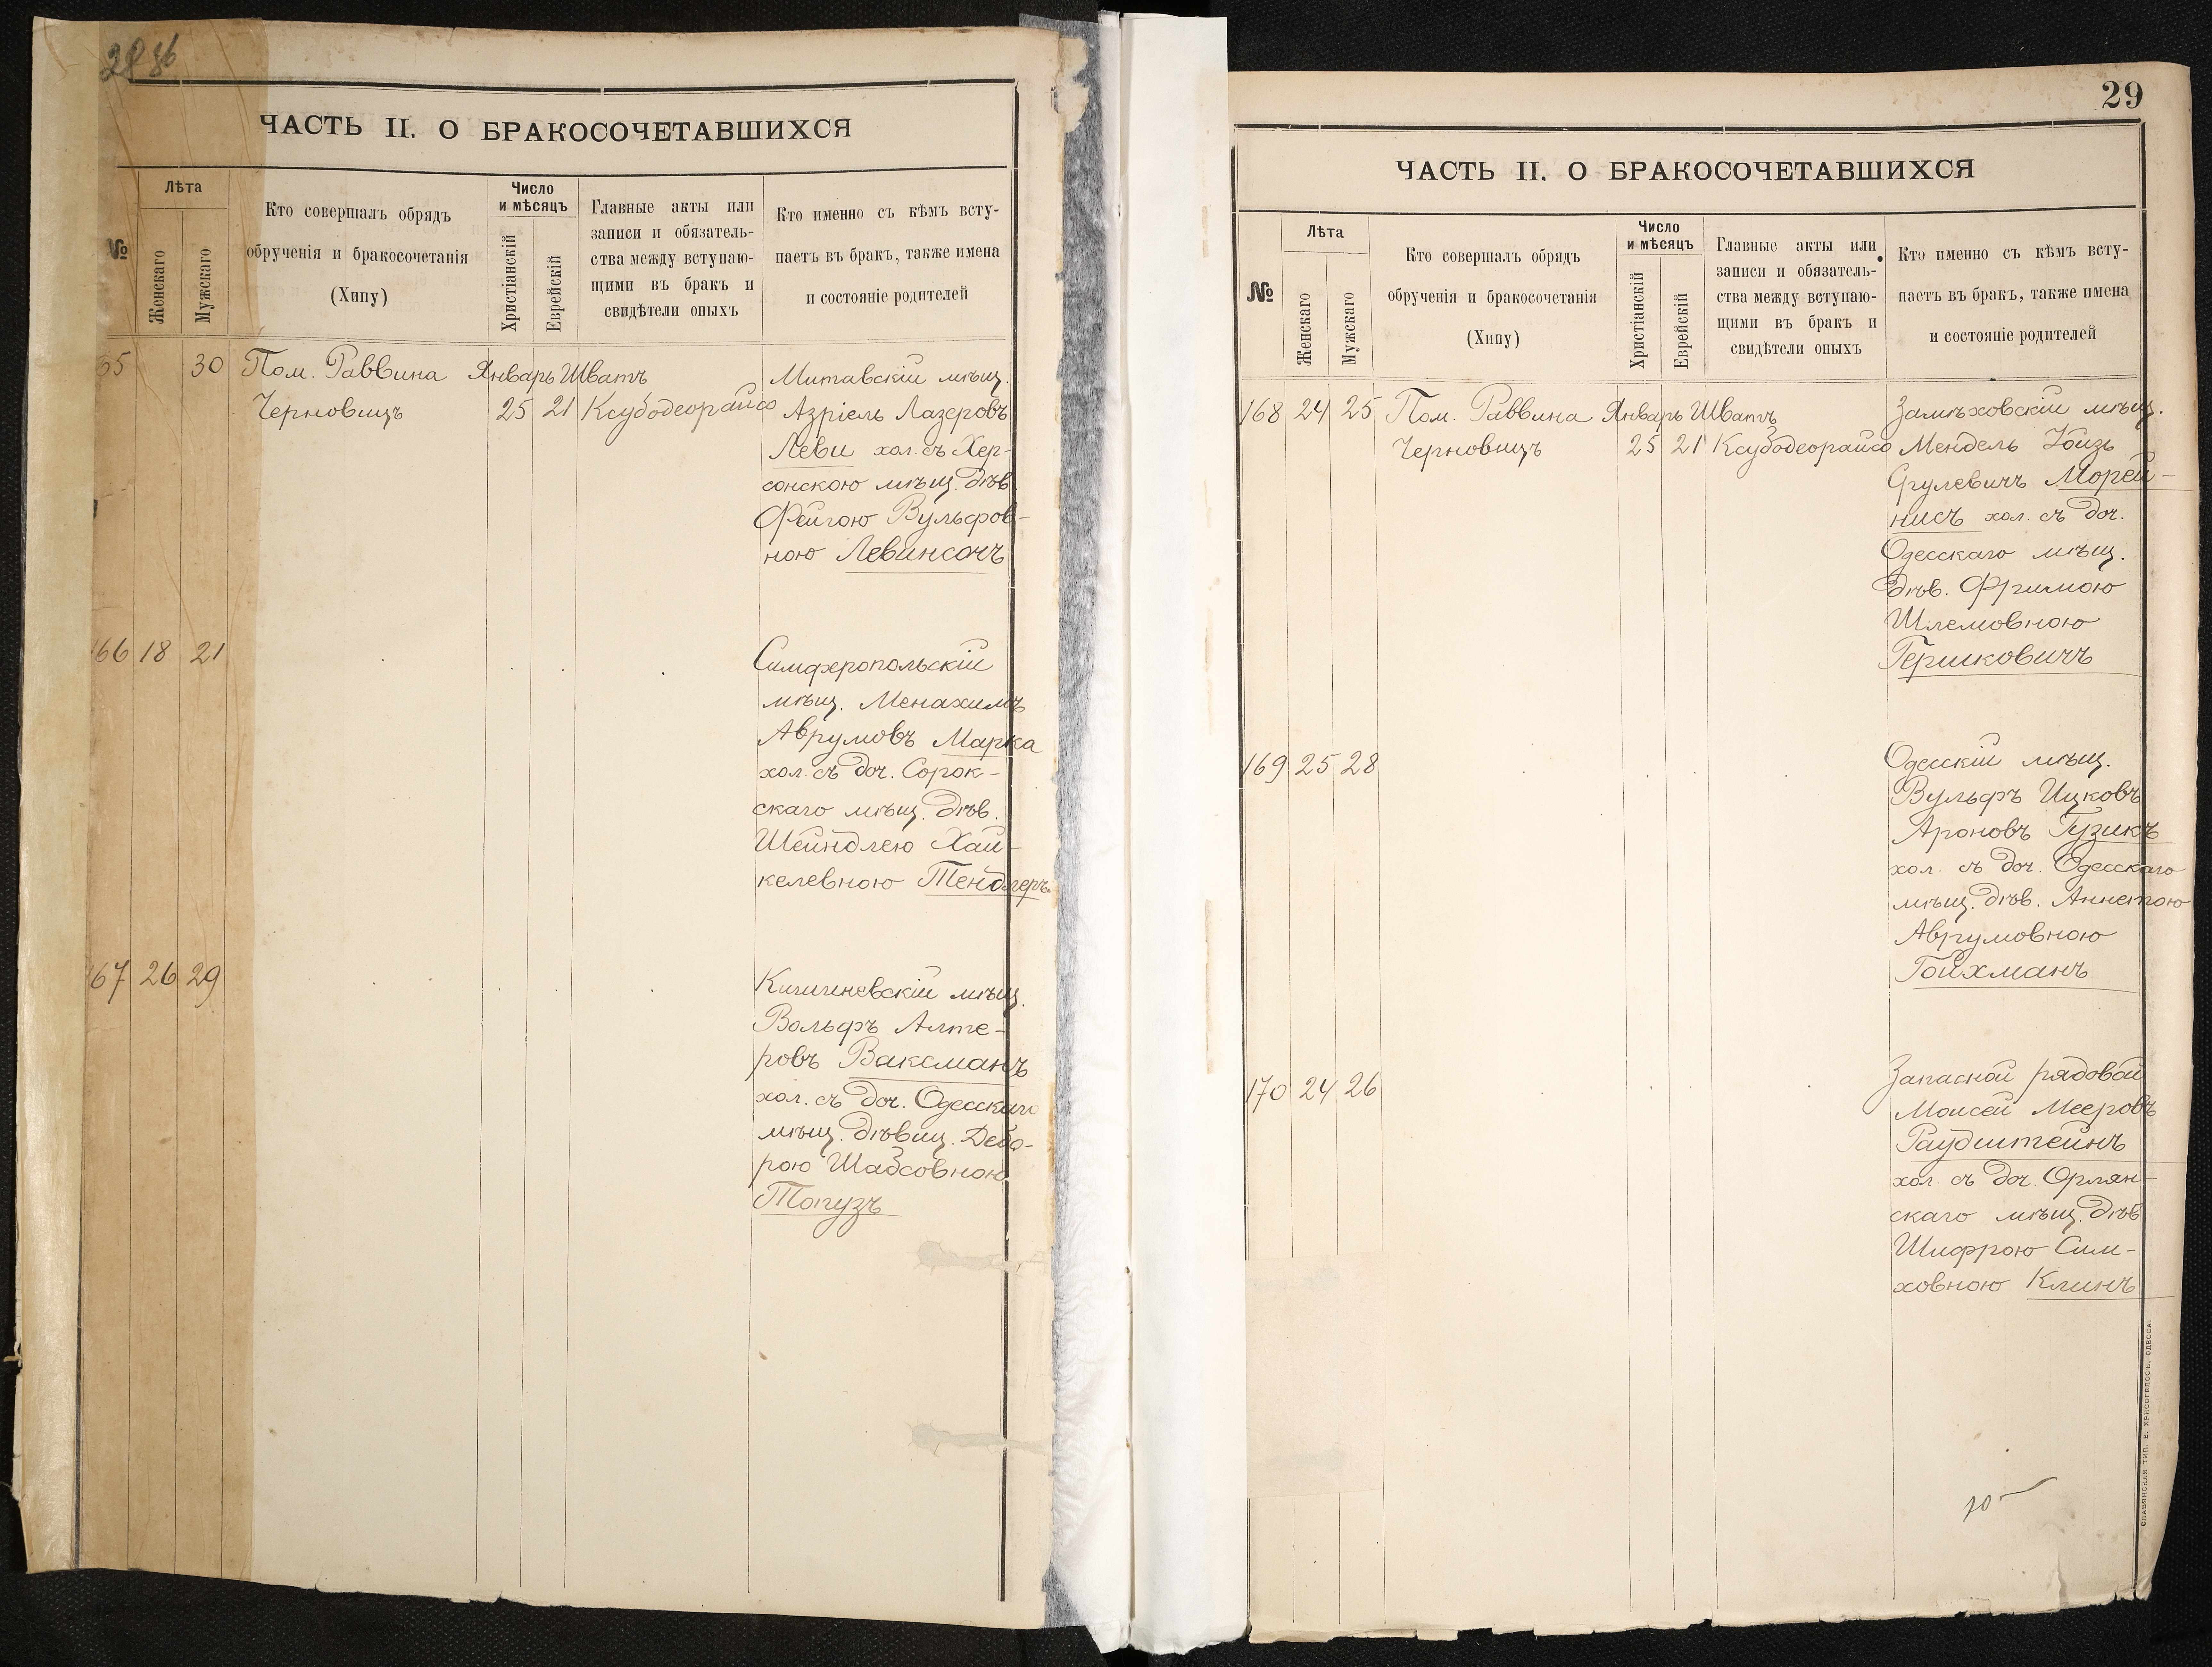 ЧАСТЬ II. О БРАКОСОЧЕТАВШИХСЯ
№
Лѣта
Женскаго
Мужскаго
Кто совершалъ обрядъ
обрученія и бракосочетанія
(Хипу)
Число
и мѣсяцъ
Христіанскій
Еврейскій
Главные акты или
записи и обязатель-
ства между вступаю-
щими въ бракъ и
свидѣтели оныхъ
Кто именно съ кѣмъ всту-
паетъ въ бракъ, также имена
и состояніе родителей
65 30 Пом. Раввина Январь Шватъ Митавскій мѣщ.
Черновицъ 25 21 Ксубодеорайсо Азріель Лазеровъ
Леви хол. съ Хер-
сонскою мѣщ. дѣв.
Фейгою Вульфов-
ною Левинсонъ
166 18 21 Симферопольскій
мѣщ. Менахимъ
Аврумовъ Марка
хол. съ доч. Сорок-
скаго мѣщ. дѣв.
Шейндлею Хай-
келевною Тендлеръ
167 26 29 Кишиневскій мѣщ.
Вольфъ Алте-
ровъ Ваксманъ
хол. съ доч. Одесскаго
мѣщ. дѣвиц. Дебо-
рою Шабсовною
Топузъ
29
ЧАСТЬ II. О БРАКОСОЧЕТАВШИХСЯ
№
Лѣта
Женскаго
Мужскаго
Кто совершалъ обрядъ
обрученія и бракосочетанія
(Хипу)
Число
и мѣсяцъ
Христіанскій
Еврейскій
Главные акты или
записи и обязатель-
ства между вступаю-
щими въ бракъ и
свидѣтели оныхъ
Кто именно съ кѣмъ всту-
паетъ въ бракъ, также имена
и состояніе родителей
168 24 25 Пом. Раввина Январь Шватъ Замѣховскій мѣщ.
Черновицъ 25 21 Ксубодеорайсо Мендель Хоизъ
Срулевичъ Морей-
нисъ хол. съ доч.
Одесскаго мѣщ.
дѣв. Фримою
Шлемовною
Гершковичъ
169 25 28 Одесскій мѣщ.
Вульфъ Ицковъ
Ароновъ Гузикъ
хол. съ доч. Одесскаго
мѣщ. дѣв. Аннетою
Аврумовною
Гойхманъ
170 24 26 Запасной рядовой
Моисей Мееровъ
Раудштейнъ
хол. съ доч. Орлян-
скаго мѣщ. дѣв.
Шифрою Сим-
ховною Клинъ
СЛАВЯНСКАЯ ТИП. Е. ХРИСОГЕЛОСЪ, ОДЕССА.